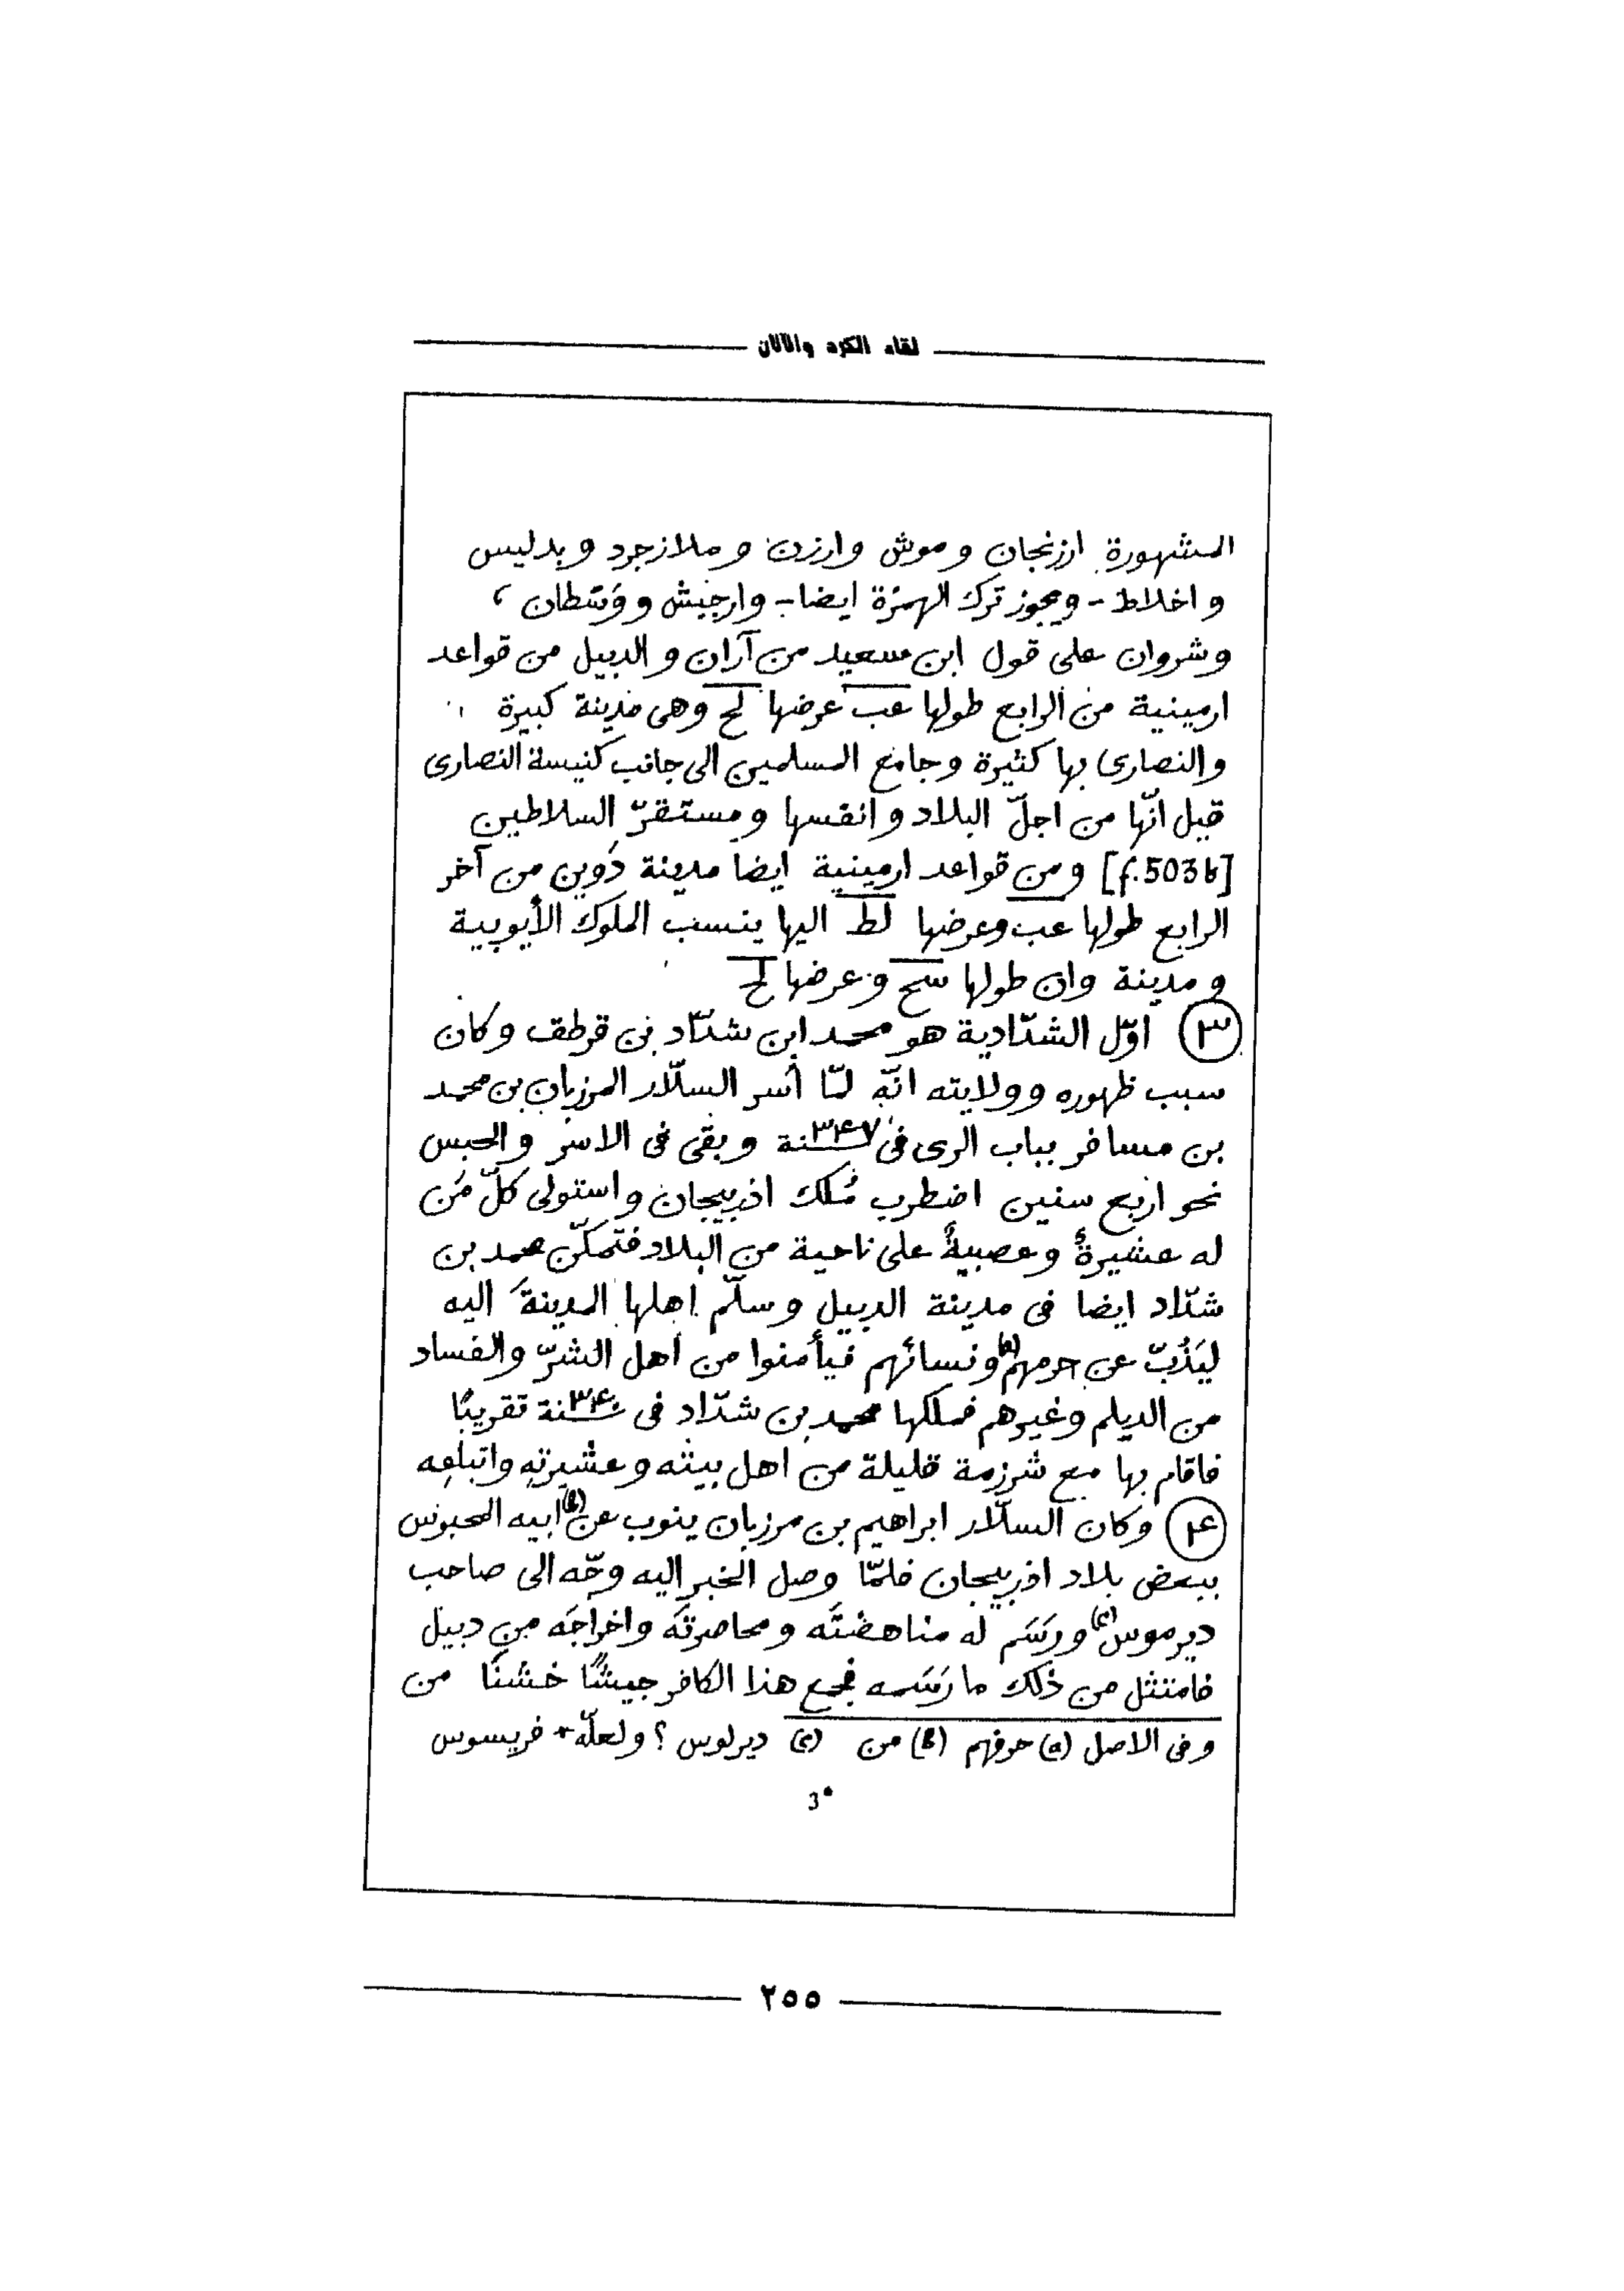 لقاء الكرد والآلان
المشهورة ارزنجان و موش وارزن و ملازجرد و بدليس
و اخلاط - ويجوز ترك الهمزة ايضا - وارجيش و وَسْطان ،
و شروان على قول ابن سعيد من آران و الدبيل من قواعد
ارمينية من الرابع طولها عب عرضها لح وهى مدينة كبيرة
والنصارى بها كثيرة وجامع المسلمين الى جانب كنيسة النصارى
قيل انّها من اجلّ البلاد و انفسها و مستقرّ السلاطين
[f.503b] و من قواعد ارمينية ايضا مدينة دَوين من آخر
الرابع طولها عب وعرضها لط اليها ينسب الملوك الأيوبية
و مدينة وان طولها سح و عرضها لح
(٣) اوّل الشدّادية هو محمد ابن شدّاد بن قرطق وكان
سبب ظهوره وولايته انّه لمّا أسر السلّار المرزبان بن محمد
بن مسافر بباب الرى فى سنة ٣٤٧ و بقى فى الاسر والحبس
نحو اربع سنين اضطرب مُلك اذربيجان و استولى كلّ مَن
له عشيرةٌ و عصبيةٌ على ناحية من البلاد فتمكّن محمد بن
شدّاد ايضا فى مدينة الدبيل وسلّم اهلها المدينةَ اليه
ليَذُبّ عن حرمهم (a) ونسائهم فيأمنوا من اهل الشرّ والفساد
من الديلم وغيرهم فملكها محمد بن شدّاد فى سنة ٣٤٠ تقريبًا
فاقام بها مع شرزمة قليلة من اهل بيته وعشيرته واتباعه
(٤) وكان السلّار ابراهيم بن مرزبان ينوب عن (b) ابيه المحبوس
ببعض بلاد اذربيجان فلمّا وصل الخبر اليه وجّه الى صاحب
ديرموس (c) ورَسَم له مناهضتَه و محاصرتَه واخراجَه من دبيل
فامتثل من ذلك ما رَسَمه فجمع هذا الكافر جيشًا خشنًا من
وفى الاصل (a) حرفهم (b) من (c) ديرلوس ؟ ولعلّه + فريسوس
3*
٢٥٥